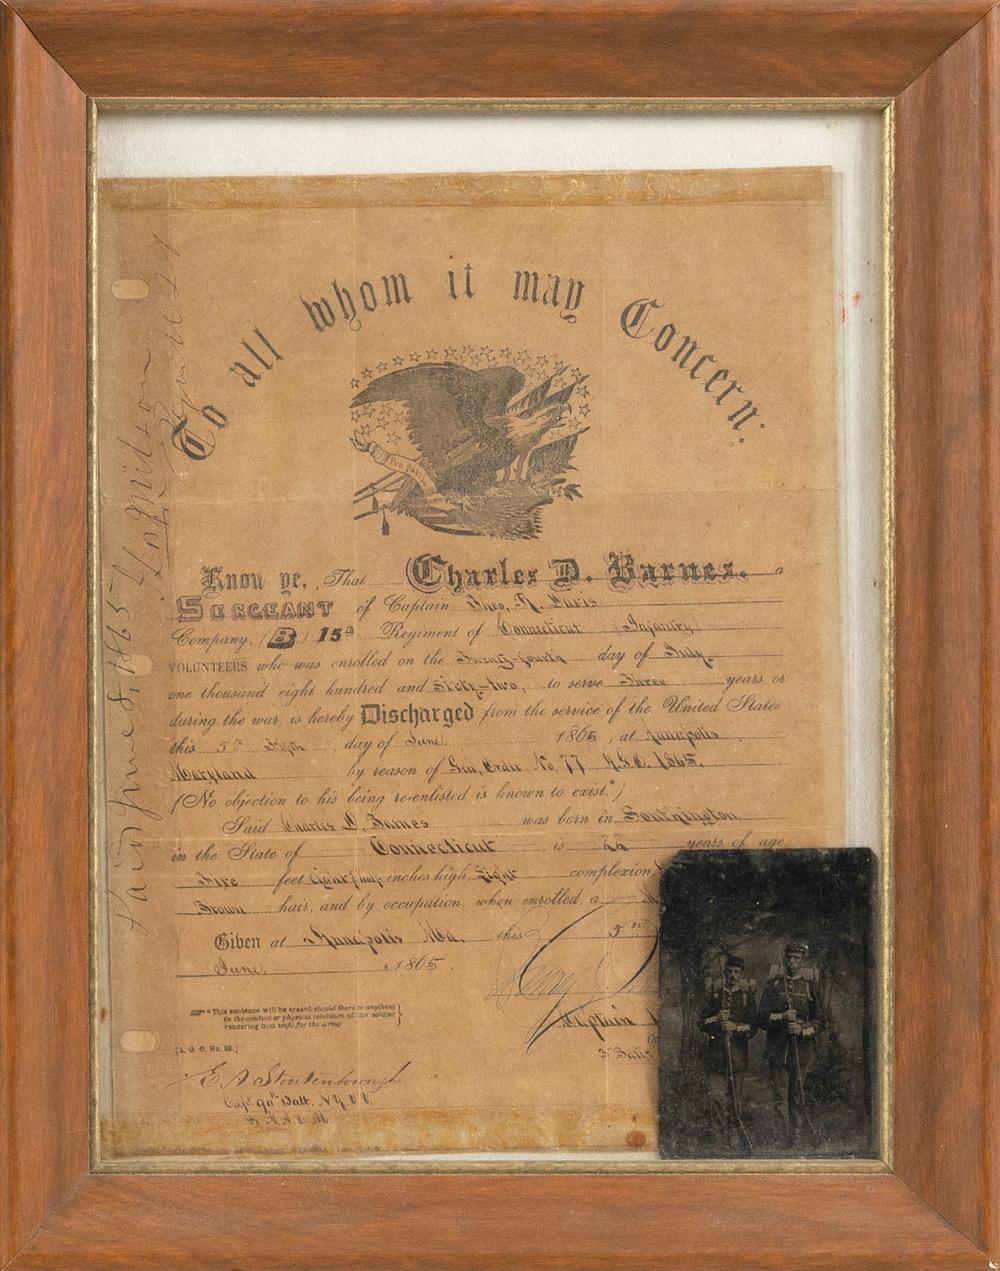 To all whom it may Concern:
Know ye, That Charles D. Barnes. a
SERGEANT of Captain Theo. R. Davis
Company, (B) 15th Regiment of Connecticut (Infantry)
VOLUNTEERS who was enrolled on the Twenty-fourth day of July
one thousand eight hundred and Sixty-two, to serve Three years or
during the war, is hereby Discharged from the service of the United States
this 5th day of June. 1865, at Annapolis
Maryland by reason of No. 77 1865.
(No objection to his being re-enlisted is known to exist.*)
Said Charles D. Barnes was born in Southington
in the State of Connecticut is 22 years of age
Five feet inches high, Light complexion,
Brown hair, and by occupation, when enrolled, a
Given at Annapolis Md. this 5th
June. 1865.
Captain
*This sentence will be erased should there be anything
in the conduct or physical condition of the soldier
rendering him unfit for the Army
[A. G. O. No. 99.]
E A Stoutenborough
Capt 90th Batt. NYVV
Paid June 8, 1865